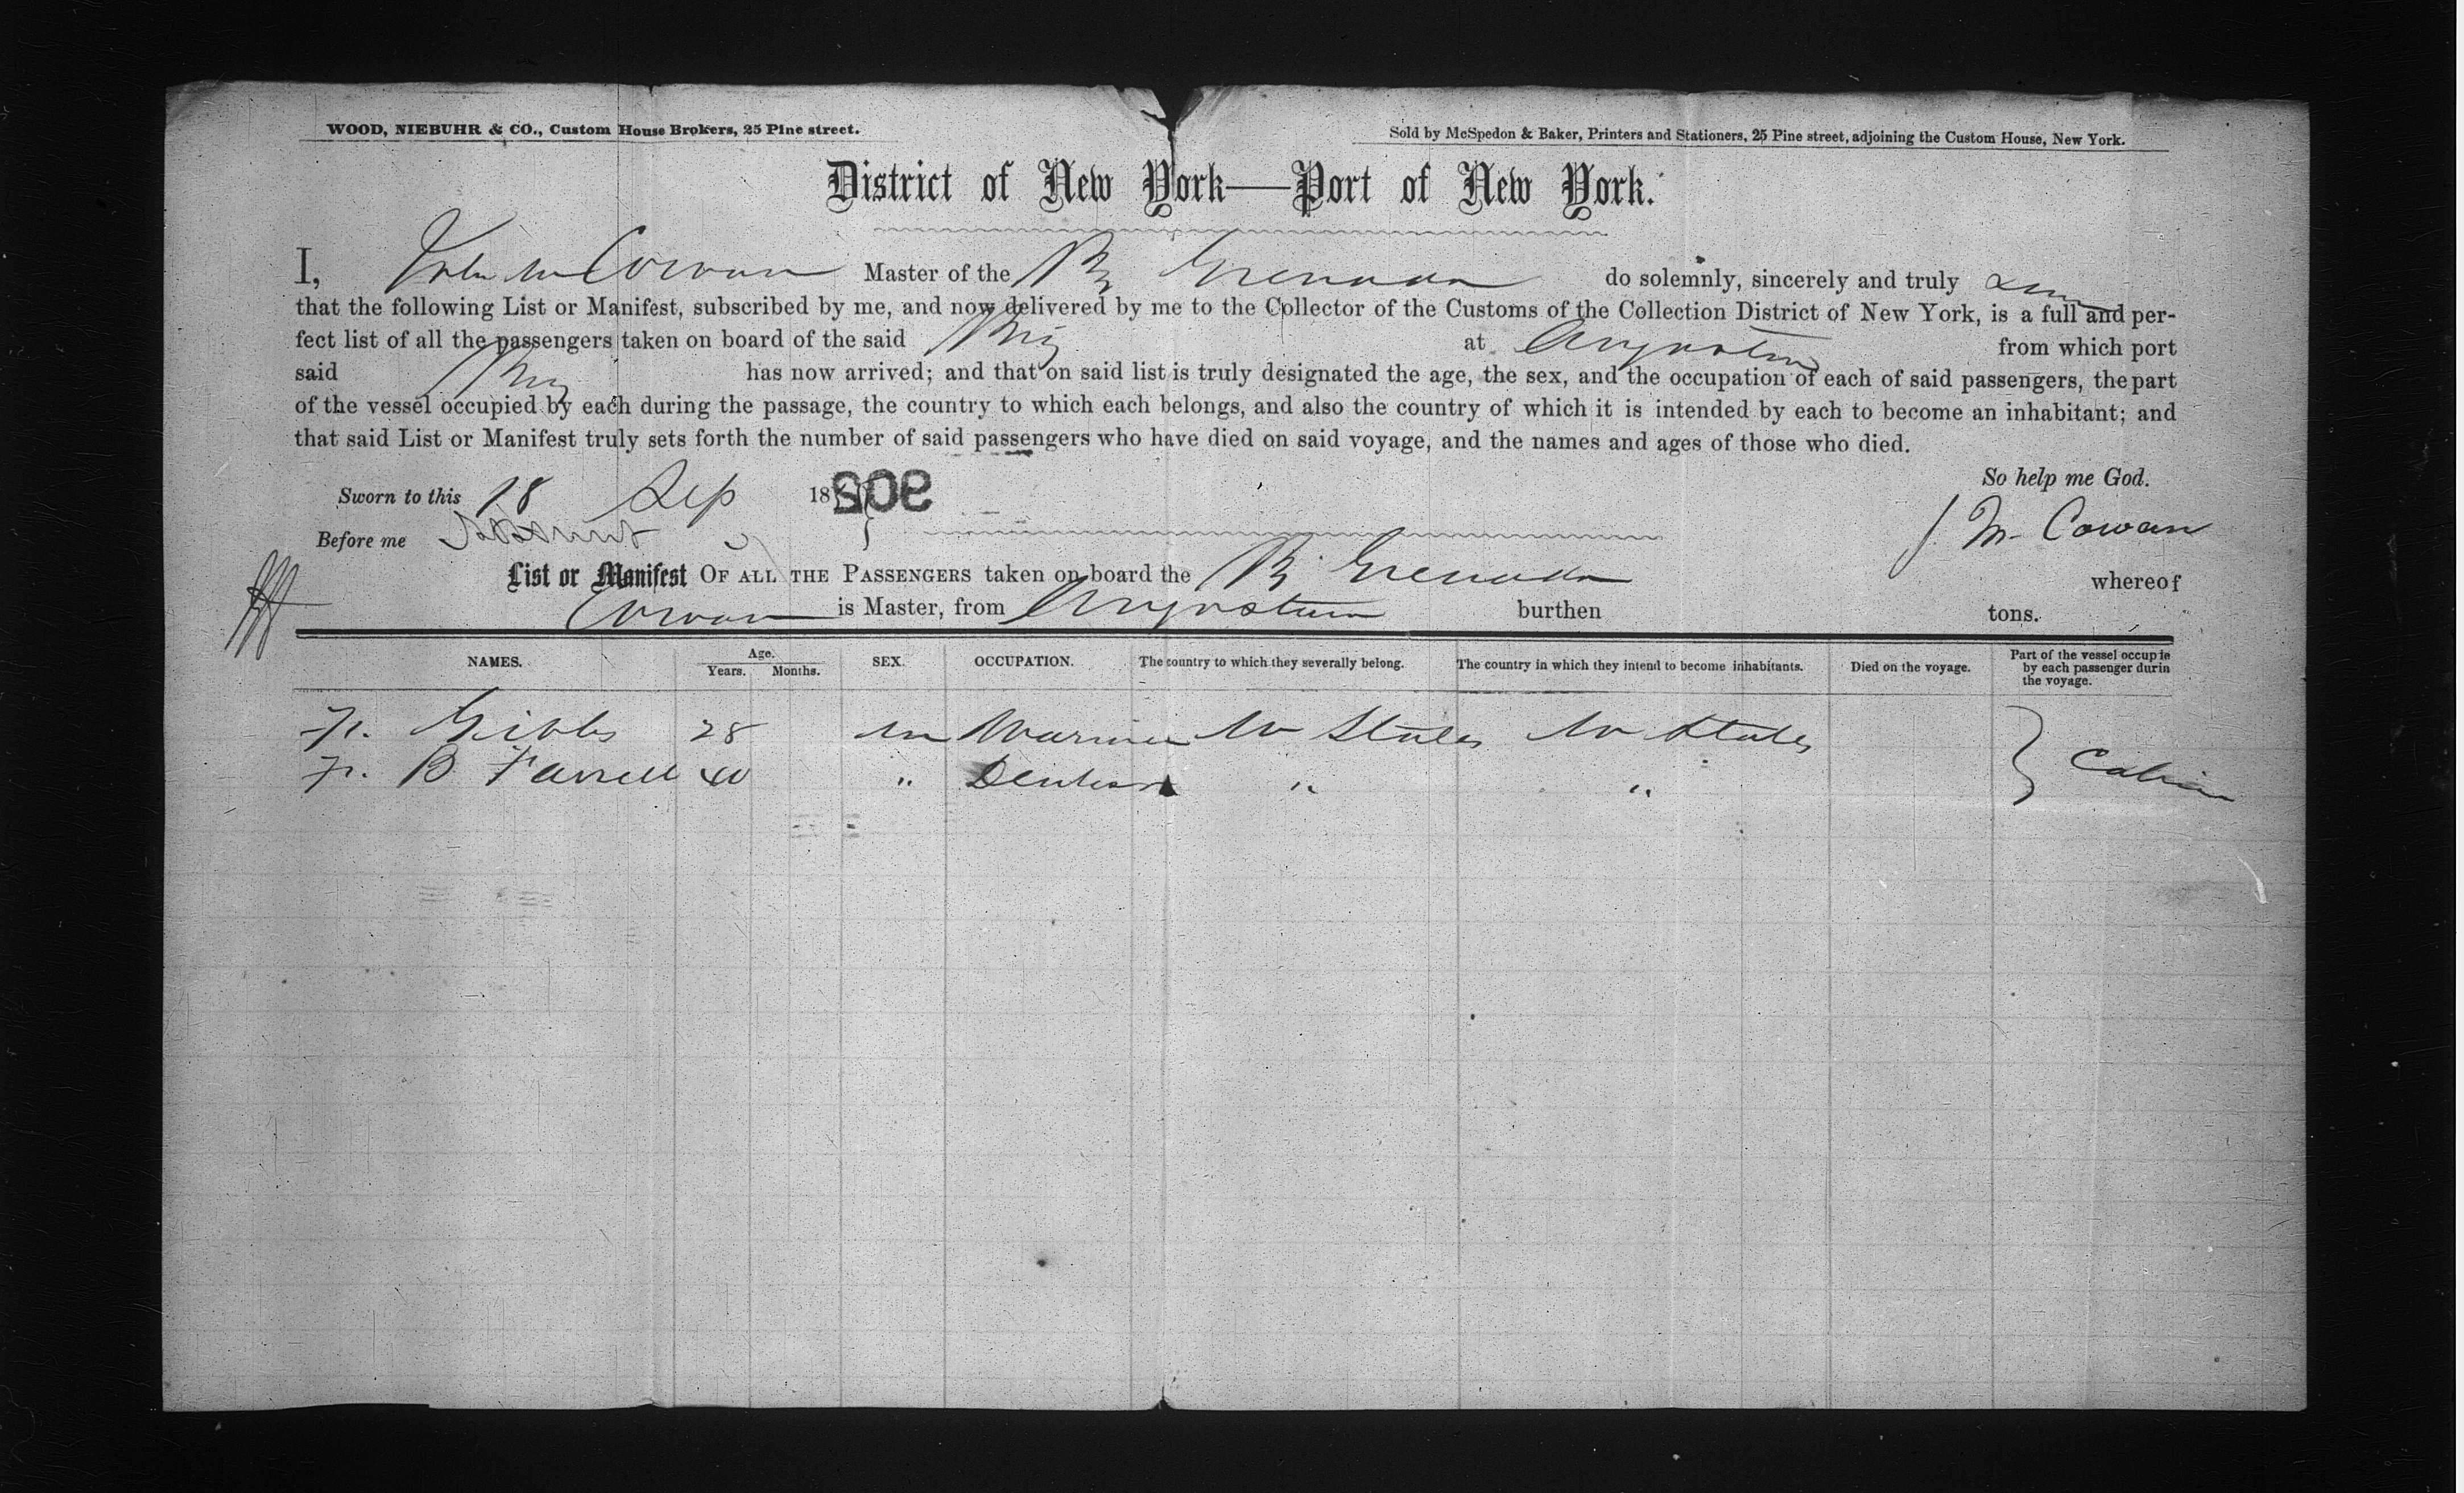 WOOD, NIEBUHR & CO., Custom House Brokers, 25 Pine street.
Sold by McSpedon & Baker, Printers and Stationers, 25 Pine street, adjoining the Custom House, New York.
District of New York—Port of New York.
I, John M Cowan Master of the Br Grenada do solemnly, sincerely and truly
that the following List or Manifest, subscribed by me, and now delivered by me to the Collector of the Customs of the Collection District of New York, is a full and per-
fect list of all the passengers taken on board of the said Brig at from which port
said Brig has now arrived; and that on said list is truly designated the age, the sex, and the occupation of each of said passengers, the part
of the vessel occupied by each during the passage, the country to which each belongs, and also the country of which it is intended by each to become an inhabitant; and
that said List or Manifest truly sets forth the number of said passengers who have died on said voyage, and the names and ages of those who died.
So help me God.
Sworn to this 18 Sep 18 902
J. M. Cowan
Before me
List or Manifest OF ALL THE PASSENGERS taken on board the Br Grenada whereof
Cowan is Master, from burthen tons.
NAMES. Age. Years. Months. SEX. OCCUPATION. The country to which they severally belong. The country in which they intend to become inhabitants. Died on the voyage. Part of the vessel occupie by each passenger durin the voyage.
Gibbs 28 m Mariner U States U States
B Farrell 40 " " " Cabin